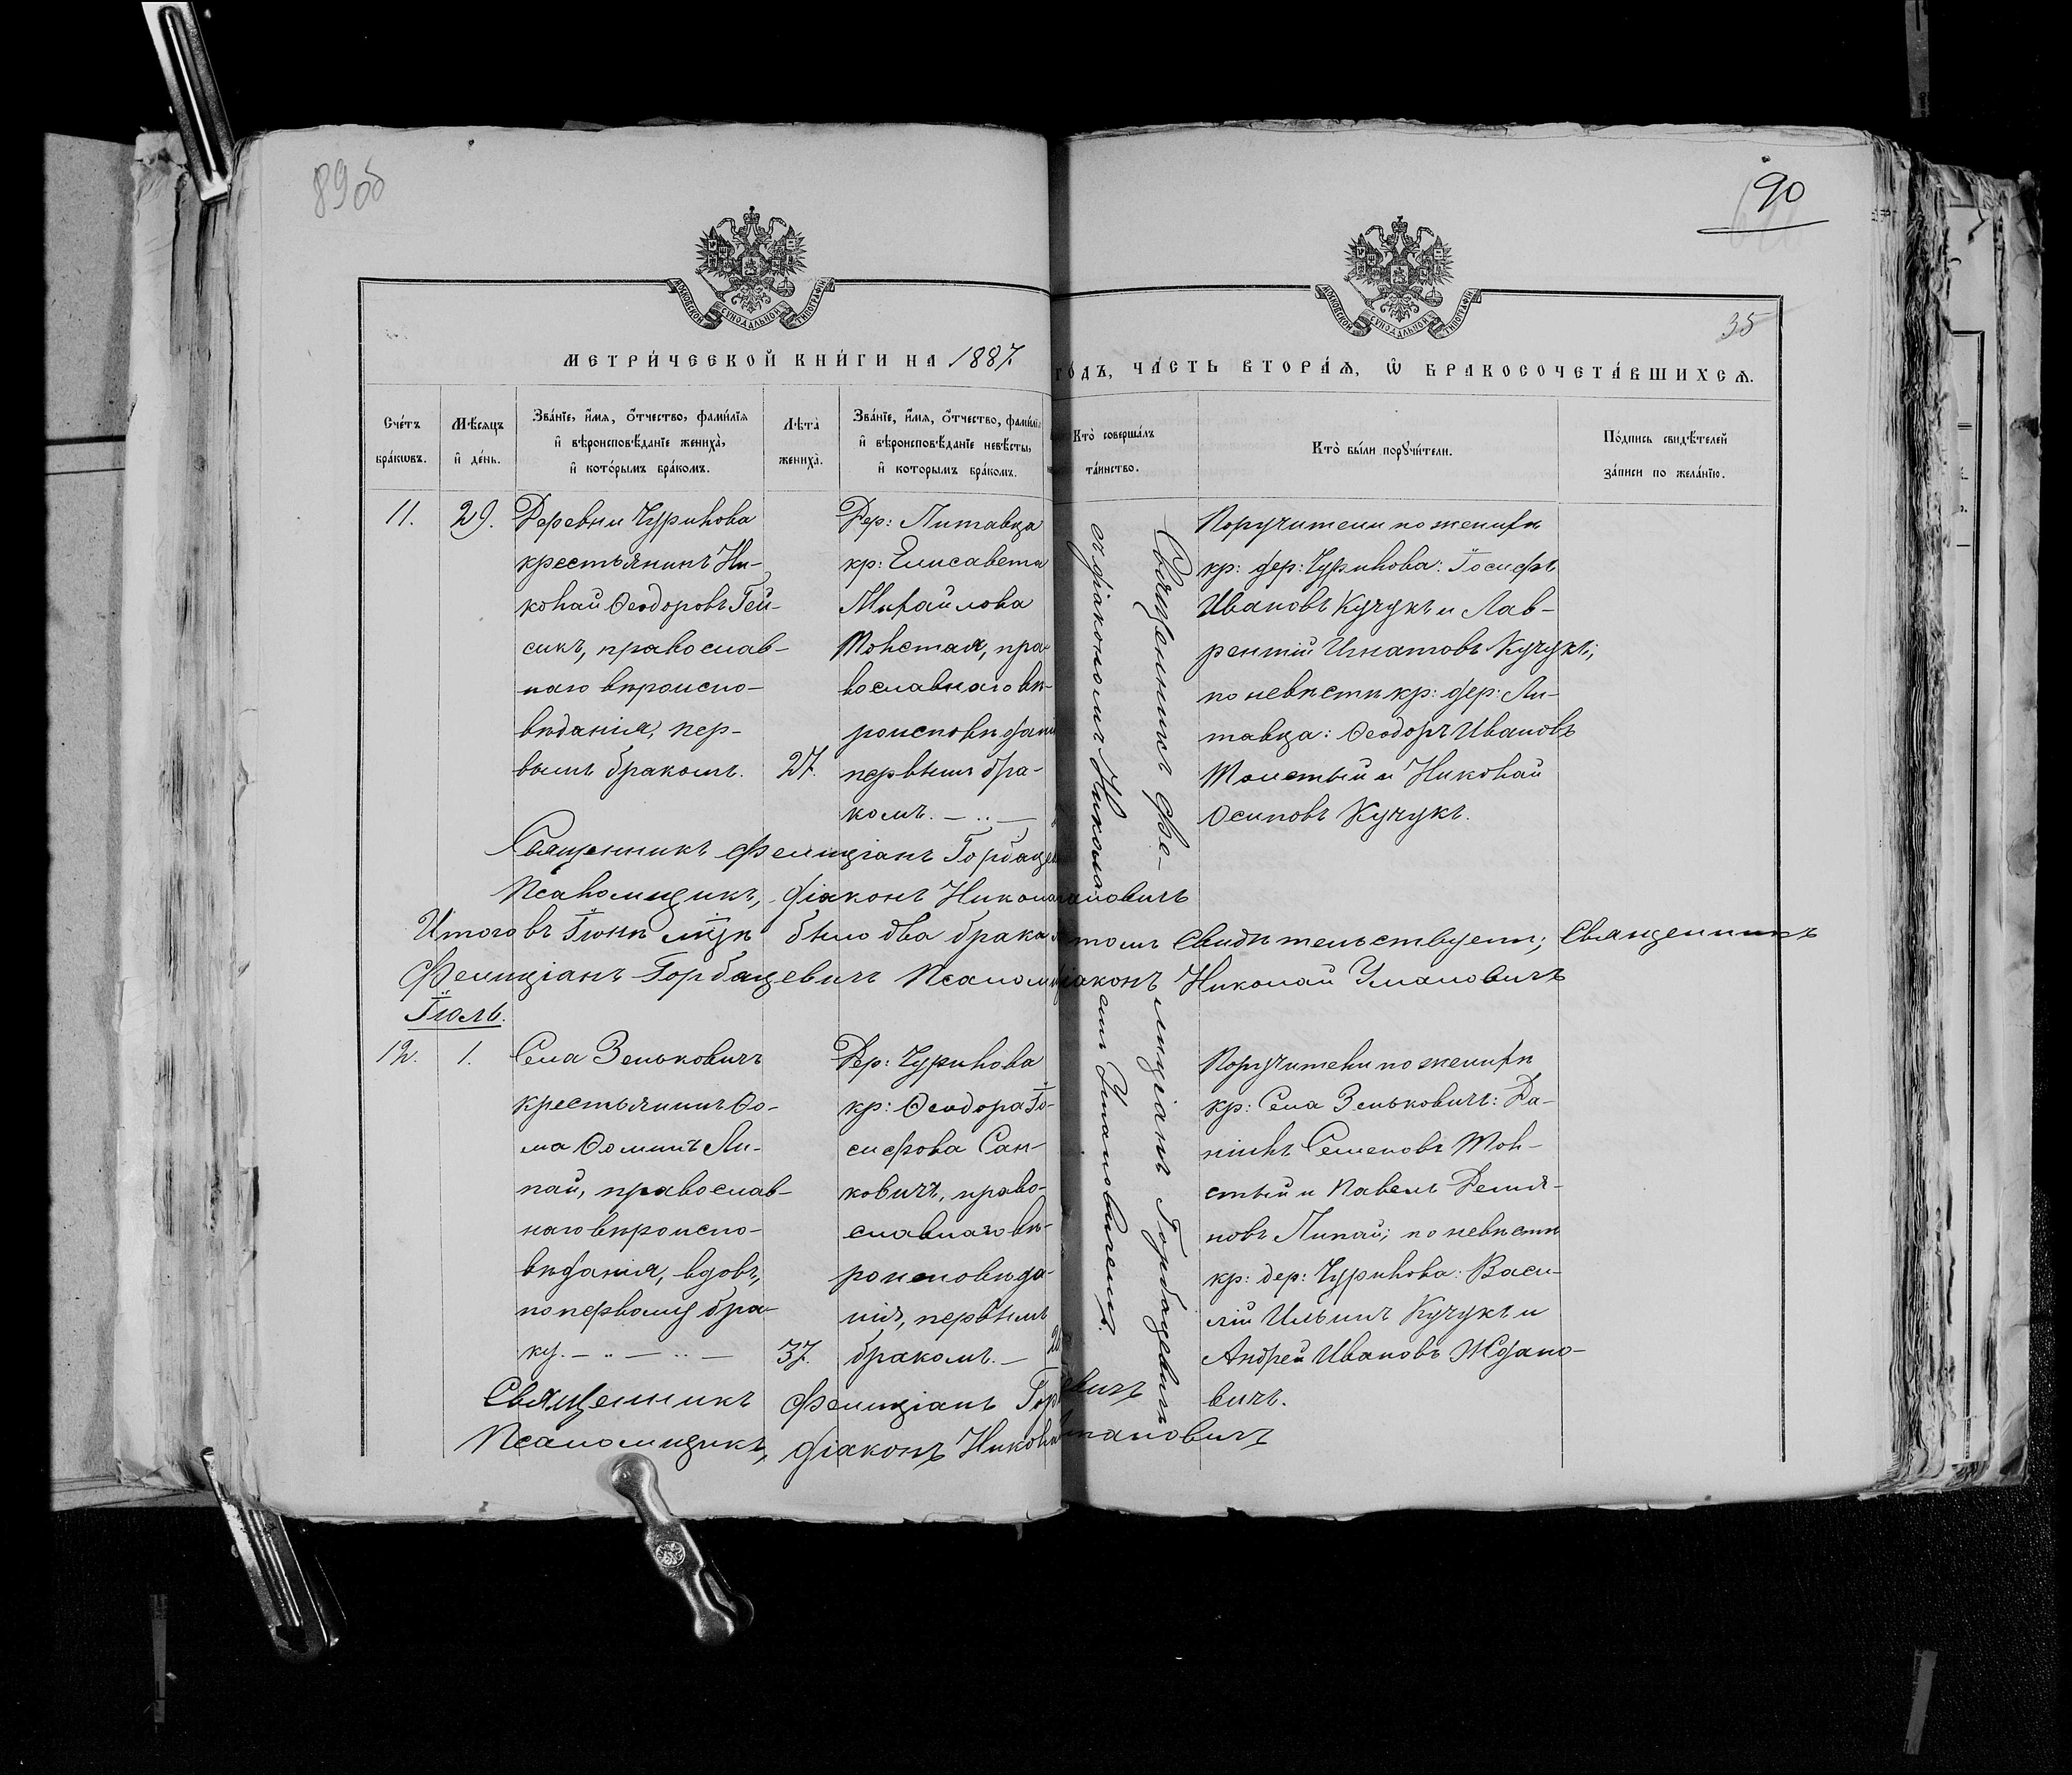 89 об
90
35
МОСКОВСКОЙ СѴНОДАЛЬНОЙ ТИПОГРАФІИ
МОСКОВСКОЙ СѴНОДАЛЬНОЙ ТИПОГРАФІИ
МЕТРИ́ЧЕСКОЙ КНИ́ГИ НА 1887 ГО́ДЪ, ЧА́СТЬ ВТОРА́Ѧ, Ѡ҆ БРАКОСОЧЕТА́ВШИХСѦ.
Сче́тъ
бра́кѡвъ.
Мѣ́сяцъ
и҆ де́нь.
Зва́нїе, и҆́мя, о҆́тчество, фами́лїя
и҆ вѣроисповѣ́данїе жениха̀,
и҆ кото́рымъ бра́комъ.
Лѣ́та
жениха̀.
Зва́нїе, и҆́мя, о҆́тчество, фами́лїя
и҆ вѣроисповѣ́данїе невѣ́сты,
и҆ которымъ бра́комъ.
Кто̀ соверша́лъ
та́инство.
Кто̀ бы́ли порꙋчи́тели.
По́дпись свидѣ́телей
за́писи по жела́нїю.
11.
29.
Деревни Чурилова
крестьянинъ Ни-
колай Ѳеодоровъ Гей-
сикъ, православ-
наго вѣроиспо-
вѣданія, пер-
вымъ бракомъ.
27.
Дер: Литавца
кр: Елисавета
Михайлова
Толстая, пра-
вославнаго вѣ-
роисповѣдані
первымъ бра-
комъ. — .. —
Священникъ Фе-
лиціанъ Горбацевичъ
съ діакономъ Никола-
емъ Умановичемъ.
Поручители по женихѣ
кр: дер: Чурилова: Іосифъ
Ивановъ Кучукъ и Лав-
рентій Игнатовъ Кучукъ;
по невѣстѣ кр: дер: Ли-
тавца: Ѳеодоръ Ивановъ
Толстый и Николай
Осиповъ Кучукъ.
Священникъ Фелиціанъ Горбаце
Псаломщикъ, діаконъ Никола мановичъ
Итого въ Іюнѣ мцѣ было два брака томъ свидѣтельствуемъ; Священникъ
Фелиціанъ Горбацевичъ Псалом діаконъ Николай Умановичъ
Іюль.
12.
1.
Села Зеньковичъ
крестьянинъ Ѳо-
ма Ѳоминъ Ли-
пай, православ-
наго вѣроиспо-
вѣданія, вдовъ,
по первому бра-
ку. — .. — .. —
37.
Дер: Чурилова
кр: Ѳеодора Іо-
сифова Сан-
ковичъ, право-
славнаго вѣ-
роисповѣда-
нія, первымъ
бракомъ. —
Поручители по женихѣ
кр: Села Зеньковичъ: Да-
ніилъ Семеновъ Тол-
стый и Павелъ Демья-
новъ Липай; по невѣстѣ
кр: дер: Чурилова: Васи-
лій Ильинъ Кучукъ и
Андрей Ивановъ Ждано-
вичъ.
Священникъ Фелиціанъ Гор евичъ
Псаломщикъ, діаконъ Никола мановичъ